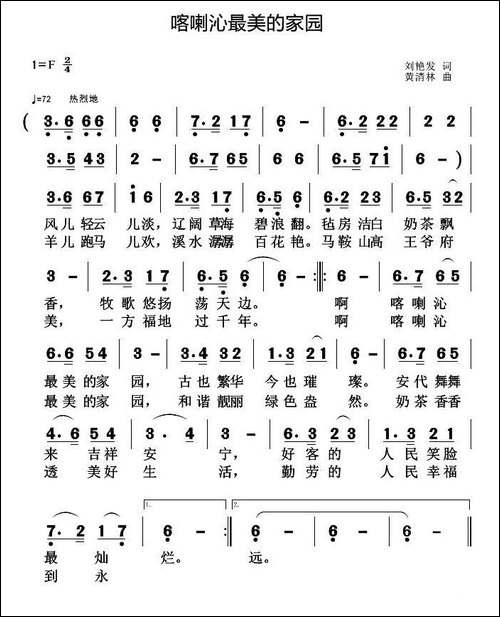 喀喇沁最美的家园
1=F 2/4
刘艳发 词
黄清林 曲
♩=72 热烈地
( 3. 6 6 6 | 6 6 | 7. 2 1 7 | 6 - | 6. 2 2 2 | 2 2 |
3. 5 4 3 | 2 - | 6. 7 6 5 | 6 6 | 6. 5 7 1 | 6 - )
3. 6 6 7 | 1 6 | 2. 3 1 7 | 6. 5 6 | 6. 2 2 3 | 6. 5 3 2
风儿轻云 儿淡，辽阔草海 碧浪翻。毡房洁白 奶茶飘
羊儿跑马 儿欢，溪水潺潺 百花艳。马鞍山高 王爷府
3 - | 2. 3 1 7 | 6. 5 6 | 6 - :‖: 6 - | 6. 7 6 5 |
香， 牧歌悠扬 荡天边。 啊 喀喇沁
美， 一方福地 过千年。 啊 喀喇沁
6. 6 5 4 | 3 - | 3. 4 3 2 | 1. 3 2 1 | 6 - | 6. 7 6 5 |
最美的家 园， 古也繁华 今也璀 璨。 安代舞舞
最美的家 园， 和谐靓丽 绿色盎 然。 奶茶香香
4. 6 5 4 | 3. 4 | 3 - | 6. 2 2 3 | 3 - | 1. 3 2 1 |
来 吉祥 安 宁， 好客的 人民笑脸
透 美好 生 活， 勤劳的 人民幸福
1. 2.
7. 2 1 7 | 6 - :‖ 6 - | 6 - | 6 - ‖
最 灿 烂。 远。
到 永